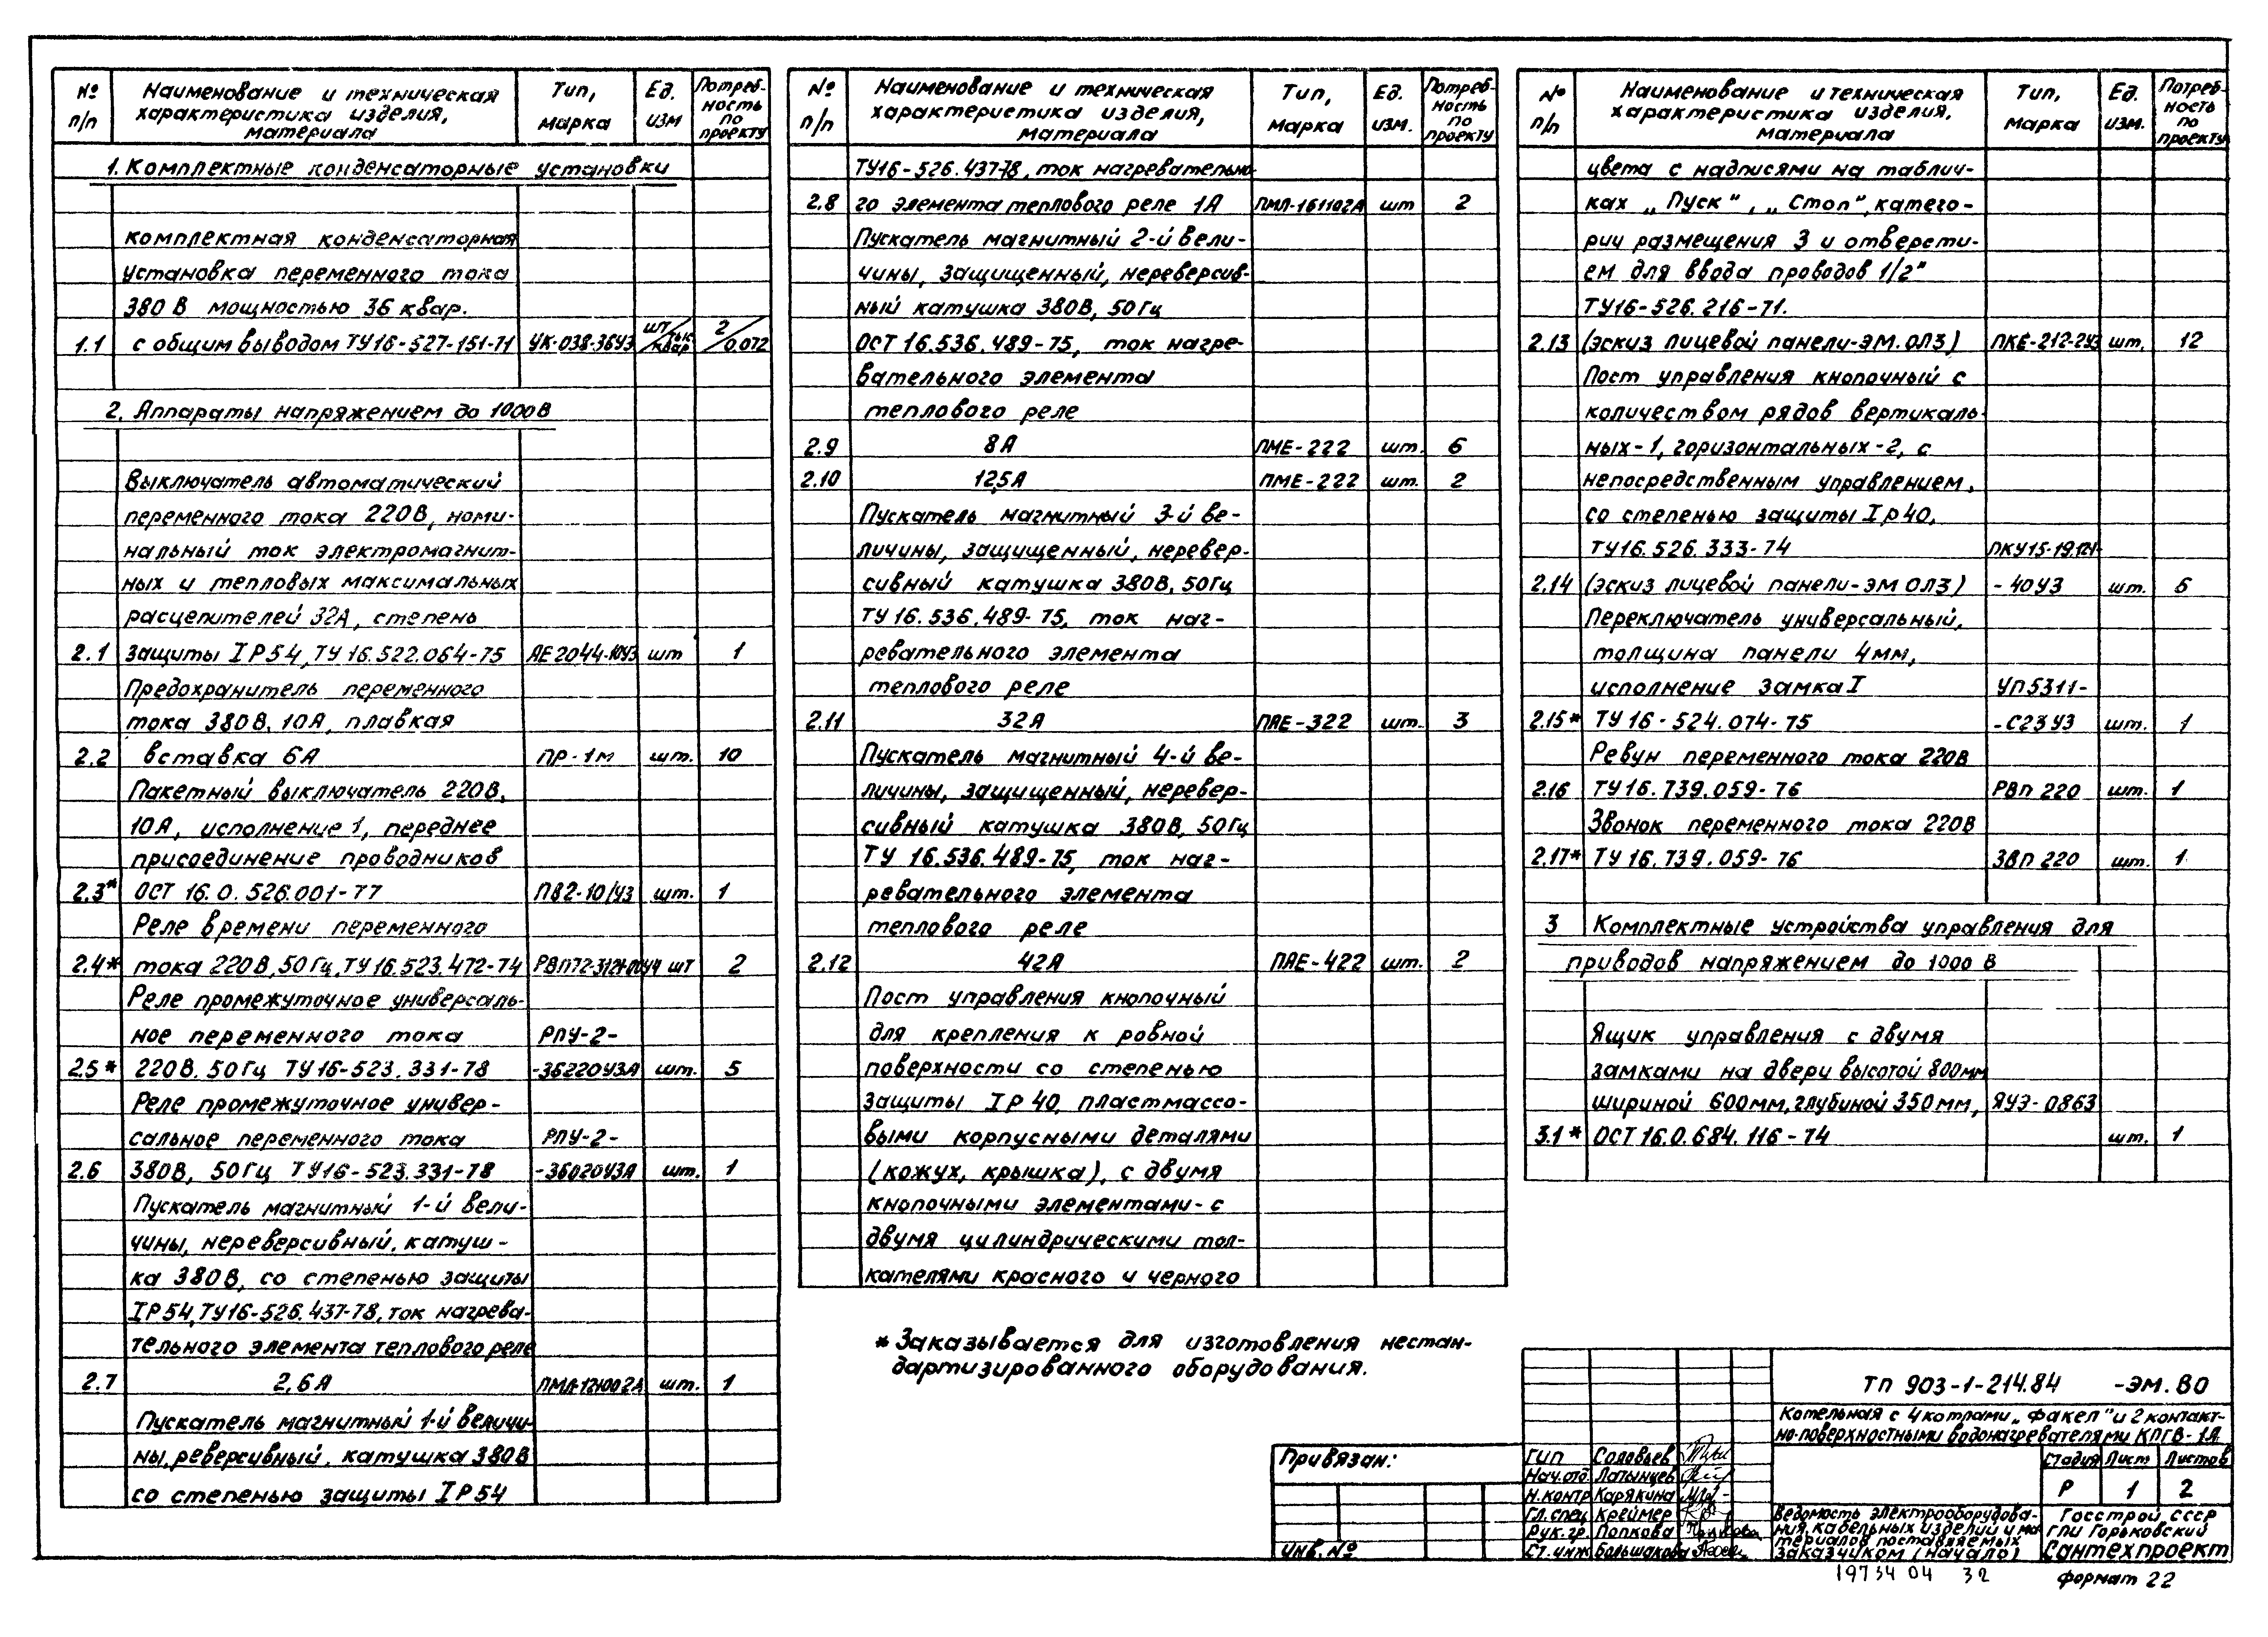 № п/п
Наименование и техническая характеристика изделия, материала
Тип, марка
Ед. изм
Потреб-ность по проекту
1. Комплектные конденсаторные установки
комплектная конденсаторная
установка переменного тока
380 В мощностью 36 квар.
1.1 с общим выводом ТУ16-527-151-71 УК-038-36У3 шт/тыс квар 2/0,072
2. Аппараты напряжением до 1000В
Выключатель автоматический
переменного тока 220В, номи-
нальный ток электромагнит-
ных и тепловых максимальных
расцепителей 32А, степень
2.1 защиты IP54, ТУ 16.522.064-75 АЕ2044-10У3 шт 1
Предохранитель переменного
тока 380В, 10А, плавкая
2.2 вставка 6А ПР-1м шт. 10
Пакетный выключатель 220В,
10А, исполнение 1, переднее
присоединение проводников
2.3* ОСТ 16.0.526.001-77 ПВ2-10/У3 шт. 1
Реле времени переменного
2.4* тока 220В, 50Гц, ТУ16.523.472-74 РВП72-3121-00У4 шт 2
Реле промежуточное универсаль-
ное переменного тока РПУ-2-
2.5* 220В. 50Гц ТУ16-523.331-78 -36220У3А шт. 5
Реле промежуточное универ-
сальное переменного тока РПУ-2-
2.6 380В, 50Гц ТУ16-523.331-78 -36020У3А шт. 1
Пускатель магнитный 1-й вели-
чины, нереверсивный, катуш-
ка 380В, со степенью защиты
IP54, ТУ16-526.437-78, ток нагрева-
тельного элемента теплового реле
2.7 2,6А ПМЛ-121002А шт. 1
Пускатель магнитный 1-й величи-
ны, реверсивный, катушка 380В
со степенью защиты IP54
№ п/п
Наименование и техническая характеристика изделия, материала
Тип, марка
Ед. изм.
Потреб-ность по проекту
ТУ16-526.437-78, ток нагревательно-
2.8 го элемента теплового реле 1А ПМЛ-161102А шт 2
Пускатель магнитный 2-й вели-
чины, защищенный, нереверсив-
ный катушка 380В, 50Гц
ОСТ 16.536.489-75, ток нагре-
вательного элемента
теплового реле
2.9 8А ПМЕ-222 шт. 6
2.10 12,5А ПМЕ-222 шт. 2
Пускатель магнитный 3-й ве-
личины, защищенный, неревер-
сивный катушка 380В, 50Гц
ТУ 16.536.489-75, ток наг-
ревательного элемента
теплового реле
2.11 32А ПАЕ-322 шт. 3
Пускатель магнитный 4-й ве-
личины, защищенный, неревер-
сивный катушка 380В, 50Гц
ТУ 16.536.489-75, ток наг-
ревательного элемента
теплового реле
2.12 42А ПАЕ-422 шт. 2
Пост управления кнопочный
для крепления к ровной
поверхности со степенью
защиты IP40, пластмассо-
выми корпусными деталями
(кожух, крышка), с двумя
кнопочными элементами-с
двумя цилиндрическими тол-
кателями красного и черного
* Заказывается для изготовления нестан-
дартизированного оборудования.
№ п/п
Наименование и техническая характеристика изделия, материала
Тип, марка
Ед. изм.
Потреб-ность по проекту
цвета с надписями на таблич-
ках „Пуск", „Стоп", катего-
рии размещения 3 и отверсти-
ем для ввода проводов 1/2"
ТУ16-526.216-71.
2.13 (эскиз лицевой панели-ЭМ.ОЛ3) ПКЕ-212-2У3 шт. 12
Пост управления кнопочный с
количеством рядов вертикаль-
ных-1, горизонтальных-2, с
непосредственным управлением,
со степенью защиты IP40,
ТУ16.526.333-74 ПКУ15-19.121-
2.14 (эскиз лицевой панели-ЭМ ОЛ3) -40У3 шт. 6
Переключатель универсальный,
толщина панели 4мм,
исполнение замка I УП5311-
2.15* ТУ 16-524.074-75 -С23У3 шт. 1
Ревун переменного тока 220В
2.16 ТУ16.739.059-76 РВП 220 шт. 1
Звонок переменного тока 220В
2.17* ТУ 16.739.059-76 ЗВП 220 шт. 1
3 Комплектные устройства управления для
приводов напряжением до 1000 В
Ящик управления с двумя
замками на двери высотой 800мм
шириной 600мм, глубиной 350мм, ЯУЭ-0863
3.1* ОСТ 16.0.684.116-74 шт. 1
Привязан:
Инв. №
ТП 903-1-214.84 -ЭМ.ВО
Котельная с 4 котлами „Факел" и 2 контакт-
но-поверхностными водонагревателями КПГВ-1А
ГИП Соловьев
Нач.отд Латынцев
Н.контр Карякина
Гл.спец Креймер
Рук.гр. Попкова
Ст.инж Большакова
Стадия Лист Листов
Р 1 2
Ведомость электрооборудова-
ния, кабельных изделий и ма-
териалов поставляемых
заказчиком (начало)
Госстрой СССР
ГПИ Горьковский
Сантехпроект
19734 04 32
Формат 22